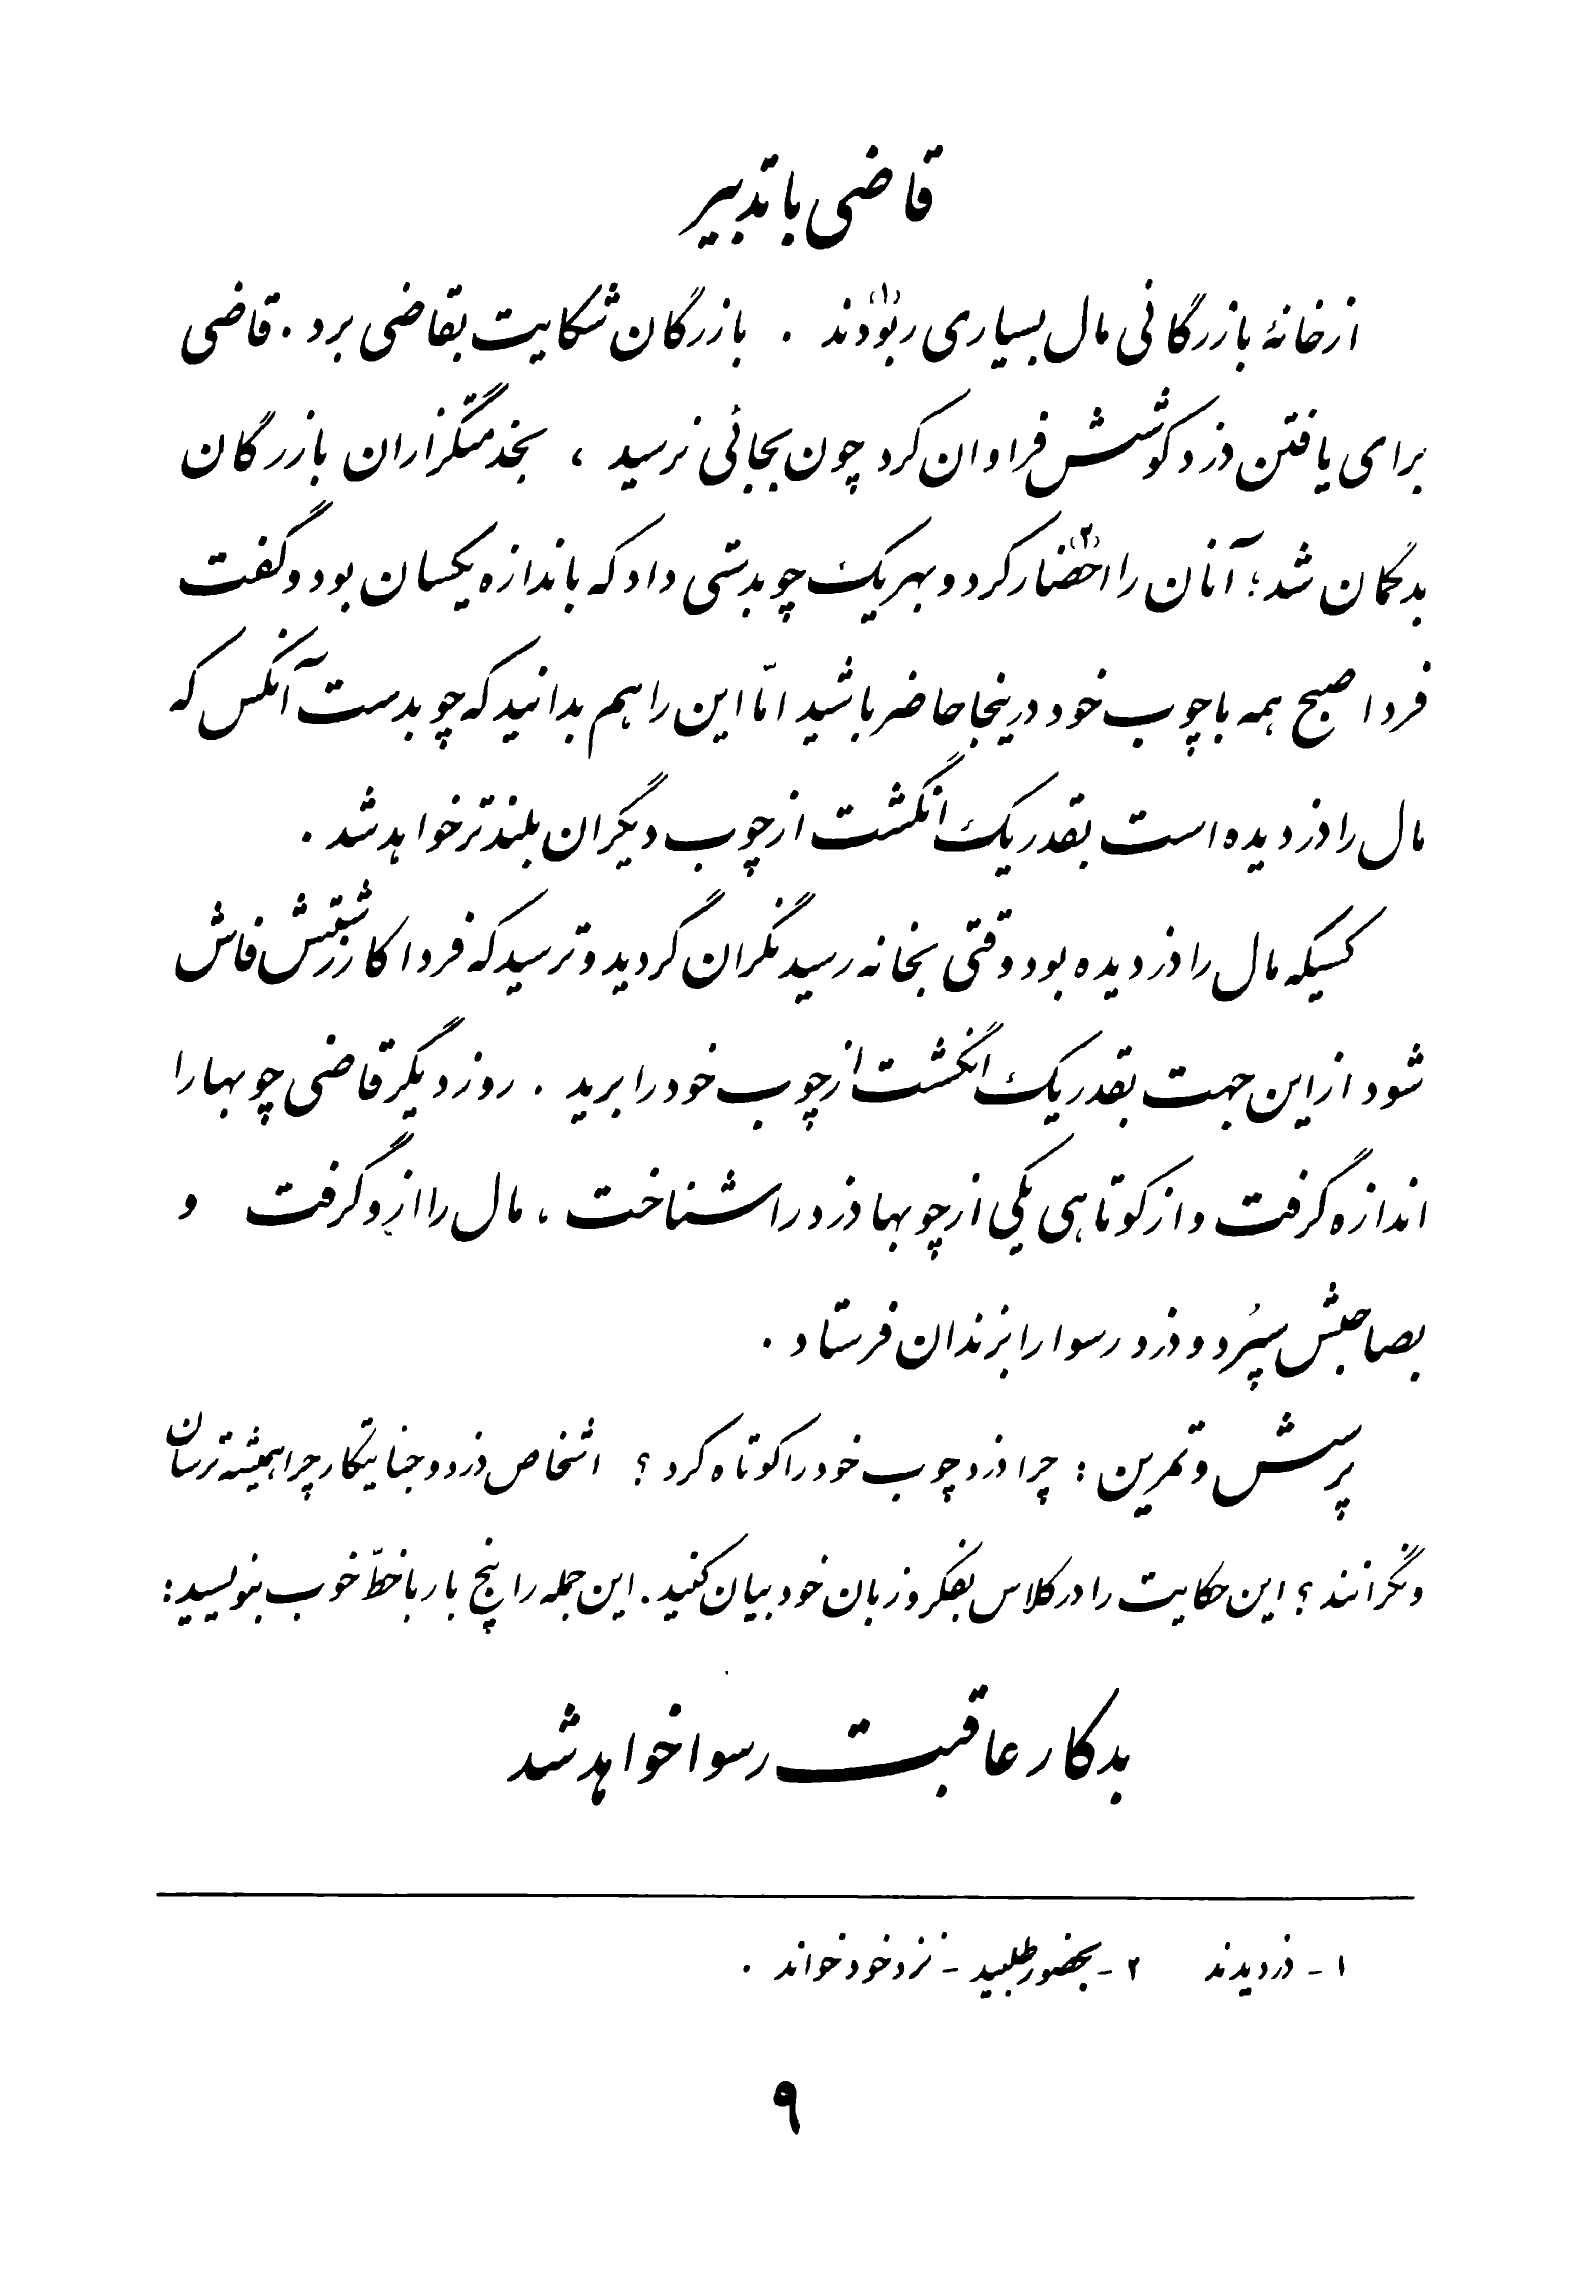 قاضی باتدبیر
از خانهٔ بازرگانی مال بسیاری ربودند (۱) . بازرگان شکایت بقاضی برد . قاضی
برای یافتن دزد کوشش فراوان کرد چون بجائی نرسید ، بخدمتگزاران بازرگان
بدگمان شد ؛ آنان را احضار (۲) کرد و بهریک چوبدستی داد که باندازه یکسان بود و گفت
فردا صبح همه با چوب خود درینجا حاضر باشید امّا این را هم بدانید که چوبدست آنکس که
مال را دزدیده است بقدر یک انگشت از چوب دیگران بلندتر خواهد شد .
کسیکه مال را دزدیده بود وقتی بخانه رسید نگران گردید و ترسید که فردا کار زشتش فاش
شود از این جهت بقدر یک انگشت از چوب خود را برید . روز دیگر قاضی چوبها را
اندازه گرفت و از کوتاهی یکی از چوبها دزد را شناخت ، مال را ازو گرفت و
بصاحبش سپُرد و دزد رسوا را بزندان فرستاد .
پرسش و تمرین : چرا دزد چوب خود را کوتاه کرد ؟ اشخاص دزد و جنایتکار چرا همیشه ترسان
و نگرانند ؟ این حکایت را در کلاس بفکر و زبان خود بیان کنید . این جمله را پنج بار با خطّ خوب بنویسید :
بدکار عاقبت رسوا خواهد شد
۱ - دزدیدند ۲ - بحضور طلبید - نزد خود خواند .
۹